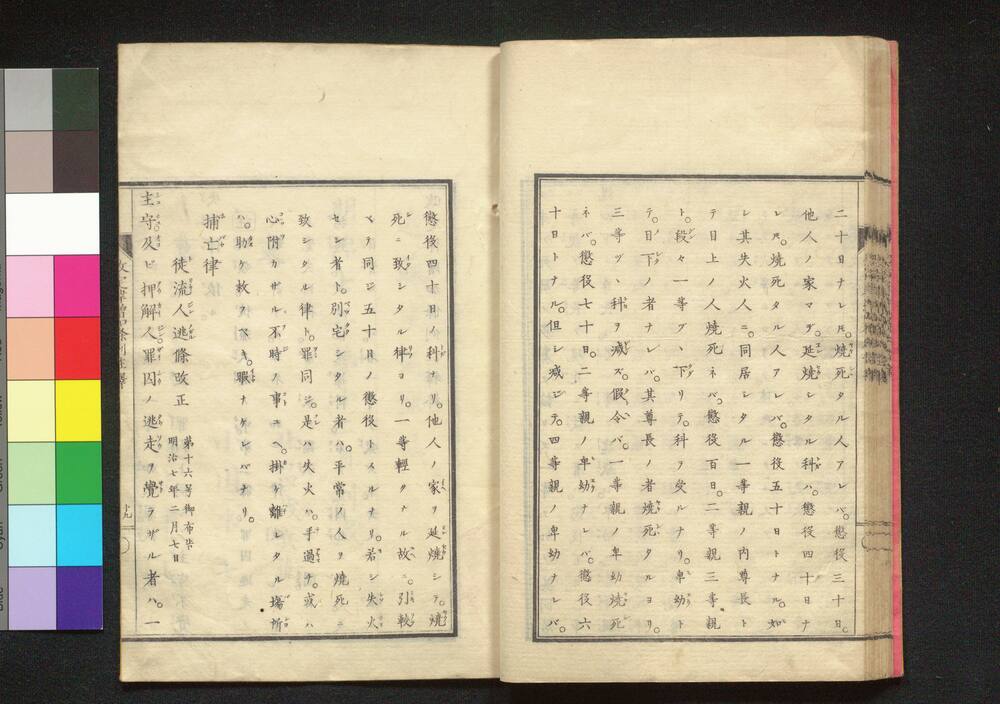 二十日ナレ𪜈。焼死タル人アレバ。懲役三十日。
他人ノ家マデ。延焼シタル科ハ。懲役四十日ナ
レ𪜈。焼死タル人アレバ。懲役五十日トナル。如
シ其失火人ニ。同居シタル一等親ノ内尊長ト
テ目上ノ人焼死ネバ。懲役百日。二等親三等親
ト。段々一等ヅヽ下リテ。科ヲ受ルナリ。卑幼ト
テ。目下ノ者ナレバ。其尊長ノ者焼死タルヨリ。
三等ヅヽ科ヲ減ズ。假令バ。一等親ノ卑幼焼死
ネバ。懲役七十日。二等親ノ卑幼ナレバ。懲役六
十日トナル。但シ減ジテ。四等親ノ卑幼ナレバ。
懲役四十日ノ科ナリ。他人ノ家ヲ延焼シテ。焼
死ニ致シタル律ヨリ。一等輕クナル故ニ。引較
ヘテ同ジ五十日ノ懲役トスルナリ。若シ失火
セシ者ト。別宅シタル者ハ。平常ノ人ヲ焼死ニ
致シタル律ト。罪同ジ。是ハ失火ハ。手過ナ。或ハ
心附カザル不時ノ事ユヘ。掛ケ離レタル場所
ハ。助ケ救フベキ。暇ナケレバナリ。
捕亡律
徒流人逃條改正
第十六号御布告
明治七年二月七日
主守。及ビ押解人罪囚ノ逃走ヲ覺ラザル者ハ。一